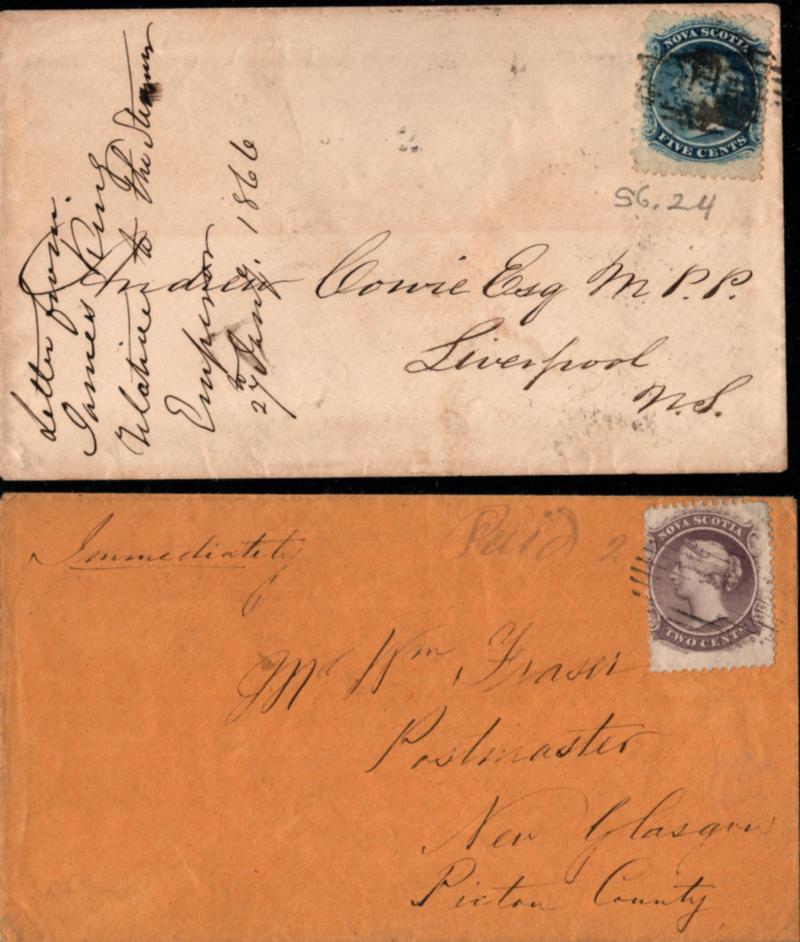 NOVA SCOTIA
FIVE CENTS
SG. 24
Letter from
James King
relative to the Steamer
Emperor
27th Jany. 1866
Andrew Cowie Esq M.P.P.
Liverpool
N.S.
Immediately
Paid 2
NOVA SCOTIA
TWO CENTS
Mr Wm Fraser
Postmaster
New Glasgow
Pictou County